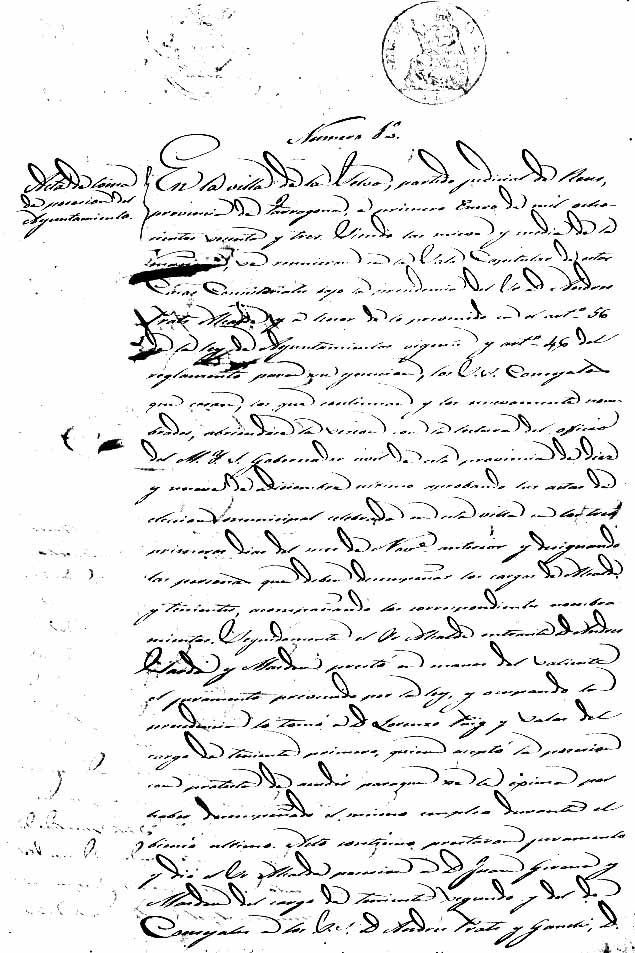 Numero 1º.
Acta de toma
de posesion del
Ayuntamiento.
En la villa de la Selva, partido judicial de Reus,
provincia de Tarragona, a primero Enero de mil ocho-
cientos sesenta y tres. Siendo las nueve y media de la
mañana, se reunieron en la Sala Capitular de estas
Casas Consistoriales bajo la presidencia del Sr. D. Andres
Prats Alcalde y a tenor de lo prevenido en el artº 56
de la ley de Ayuntamientos vigente y artº 46 del
reglamento para su ejecucion, los S.S. Concejales
que cesan, los que continuan y los nuevamente nom-
brados, abriendose la sesion con la lectura del oficio
del M. Y. S. Gobernador civil de esta provincia de diez
y nueve de diciembre ultimo aprobando las actas de
eleccion municipal celebrada en esta villa en los tres
primeros dias del mes de Novº anterior y designando
las personas que deben desempeñar los cargos de Alcalde
y tenientes, acompañando los correspondientes nombra-
mientos. Seguidamente el Sr. Alcalde entrante D. Andres
y Masdeu prestó en manos del saliente
el juramento prevenido por la ley, y ocupando la
presidencia la tomó a D. Lorenzo Puig y del
cargo de teniente primero, quien aceptó la posesion
con protesta de acudir paraque se le por
haber desempeñado el mismo empleo durante el
bienio ultimo. Acto continuo prestaron juramento
y dió el Sr. Alcalde posesion a D. Juan y
Masdeu del cargo de teniente segundo y del de
Concejales a los S.S. D. Andres Prats y D.